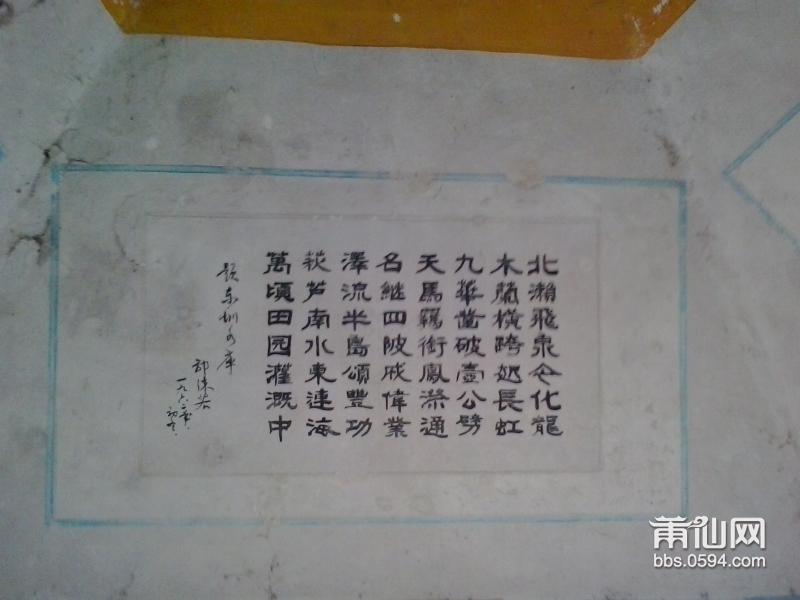 北濑飛泉今化龍
木蘭橫跨如長虹
九華凿破壺公劈
天馬羈銜鳳漈通
名继四陂成偉業
澤流半島頌豐功
荻芦南水東連海
萬頃田园灌溉中
题东圳水库
郭沫若
一九六二年
初冬
莆仙网
bbs.0594.com